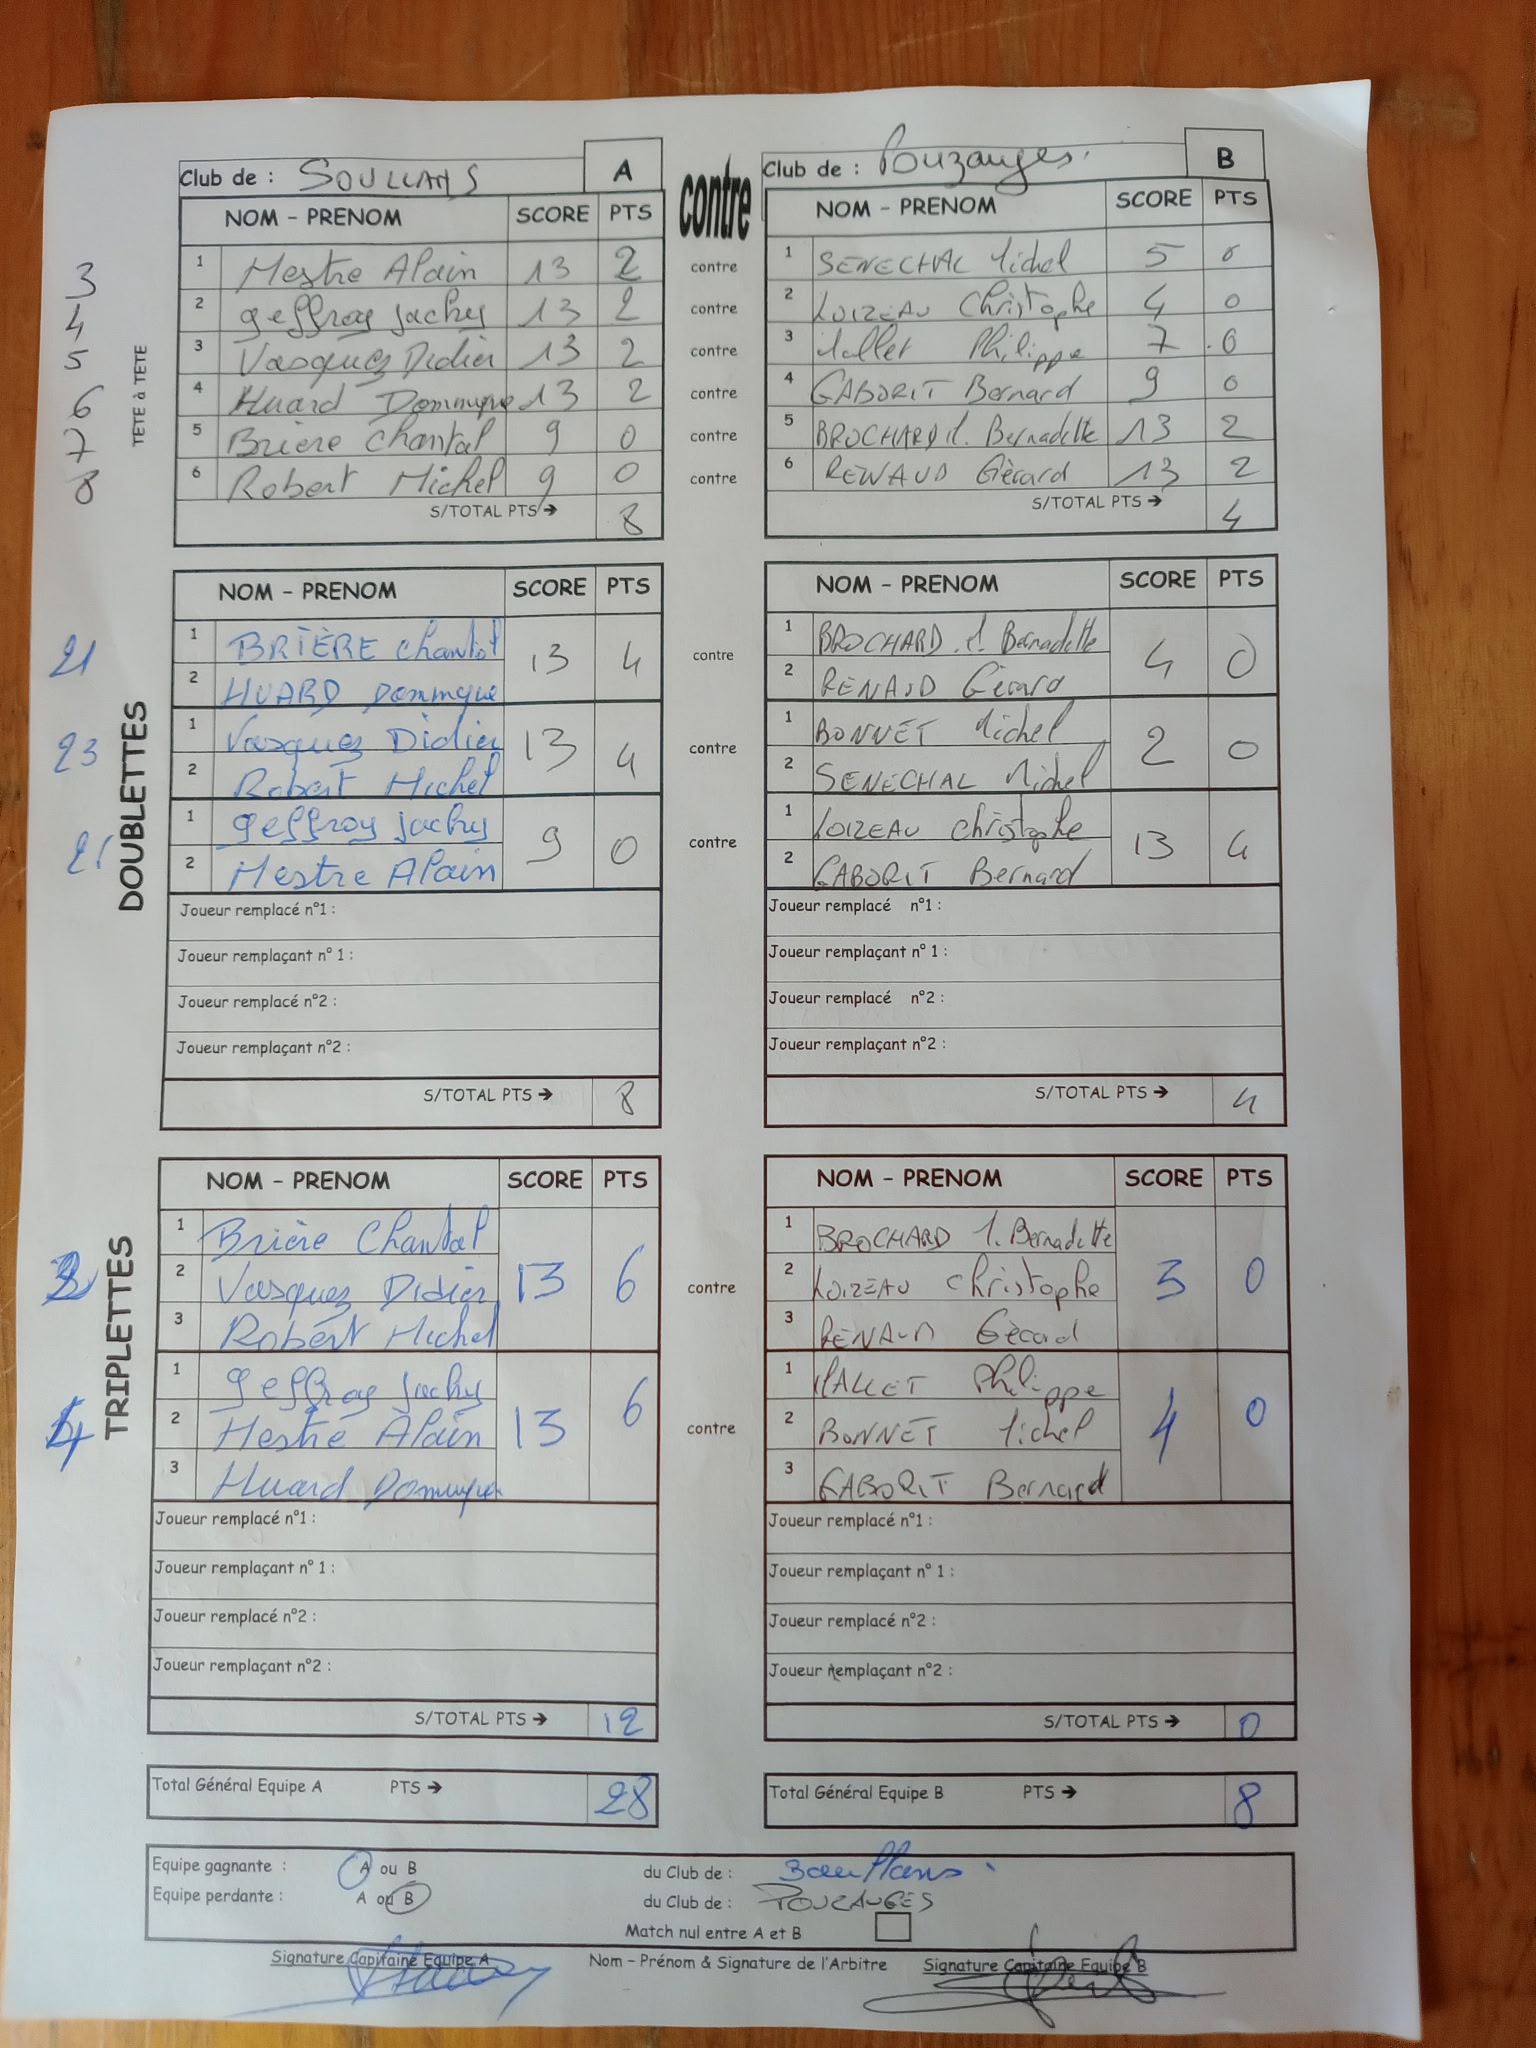 Club de : SOULLANS A contre Club de : Pouzauges. B
NOM - PRENOM SCORE PTS NOM - PRENOM SCORE PTS
TETE à TETE
3 1 Mestre Alain 13 2 contre 1 SENECHAL Michel 5 0
4 2 geffroy jacky 13 2 contre 2 LOIZEAU Christophe 4 0
5 3 Vasquez Didier 13 2 contre 3 Mallet Philippe 7 0
6 4 Huard Dominique 13 2 contre 4 GABORIT Bernard 9 0
7 5 Brière Chantal 9 0 contre 5 BROCHARD M. Bernadette 13 2
8 6 Robert Michel 9 0 contre 6 RENAUD Gérard 13 2
S/TOTAL PTS → 8 S/TOTAL PTS → 4
NOM - PRENOM SCORE PTS NOM - PRENOM SCORE PTS
DOUBLETTES
21 1 BRIÈRE Chantal 13 4 contre 1 BROCHARD M. Bernadette 4 0
2 HUARD Dominique 2 RENAUD Gérard
23 1 Vasquez Didier 13 4 contre 1 BONNET Michel 2 0
2 Robert Michel 2 SENECHAL Michel
1 geffroy jacky 9 0 contre 1 LOIZEAU Christophe 13 4
2 Mestre Alain 2 GABORIT Bernard
Joueur remplacé n°1 : Joueur remplacé n°1 :
Joueur remplaçant n° 1 : Joueur remplaçant n° 1 :
Joueur remplacé n°2 : Joueur remplacé n°2 :
Joueur remplaçant n°2 : Joueur remplaçant n°2 :
S/TOTAL PTS → 8 S/TOTAL PTS → 4
NOM - PRENOM SCORE PTS NOM - PRENOM SCORE PTS
TRIPLETTES
1 Brière Chantal 13 6 contre 1 BROCHARD M. Bernadette 3 0
2 Vasquez Didier 2 LOIZEAU Christophe
3 Robert Michel 3 RENAUD Gérard
1 geffroy jacky 13 6 contre 1 MALLET Philippe 4 0
2 Mestre Alain 2 BONNET Michel
3 Huard Dominique 3 GABORIT Bernard
Joueur remplacé n°1 : Joueur remplacé n°1 :
Joueur remplaçant n° 1 : Joueur remplaçant n° 1 :
Joueur remplacé n°2 : Joueur remplacé n°2 :
Joueur remplaçant n°2 : Joueur remplaçant n°2 :
S/TOTAL PTS → 12 S/TOTAL PTS → 0
Total Général Equipe A PTS → 28 Total Général Equipe B PTS → 8
Equipe gagnante : A ou B du Club de :
Equipe perdante : A ou B du Club de : POUZAUGES
Match nul entre A et B
Signature Capitaine Equipe A Nom – Prénom & Signature de l'Arbitre Signature Capitaine Equipe B